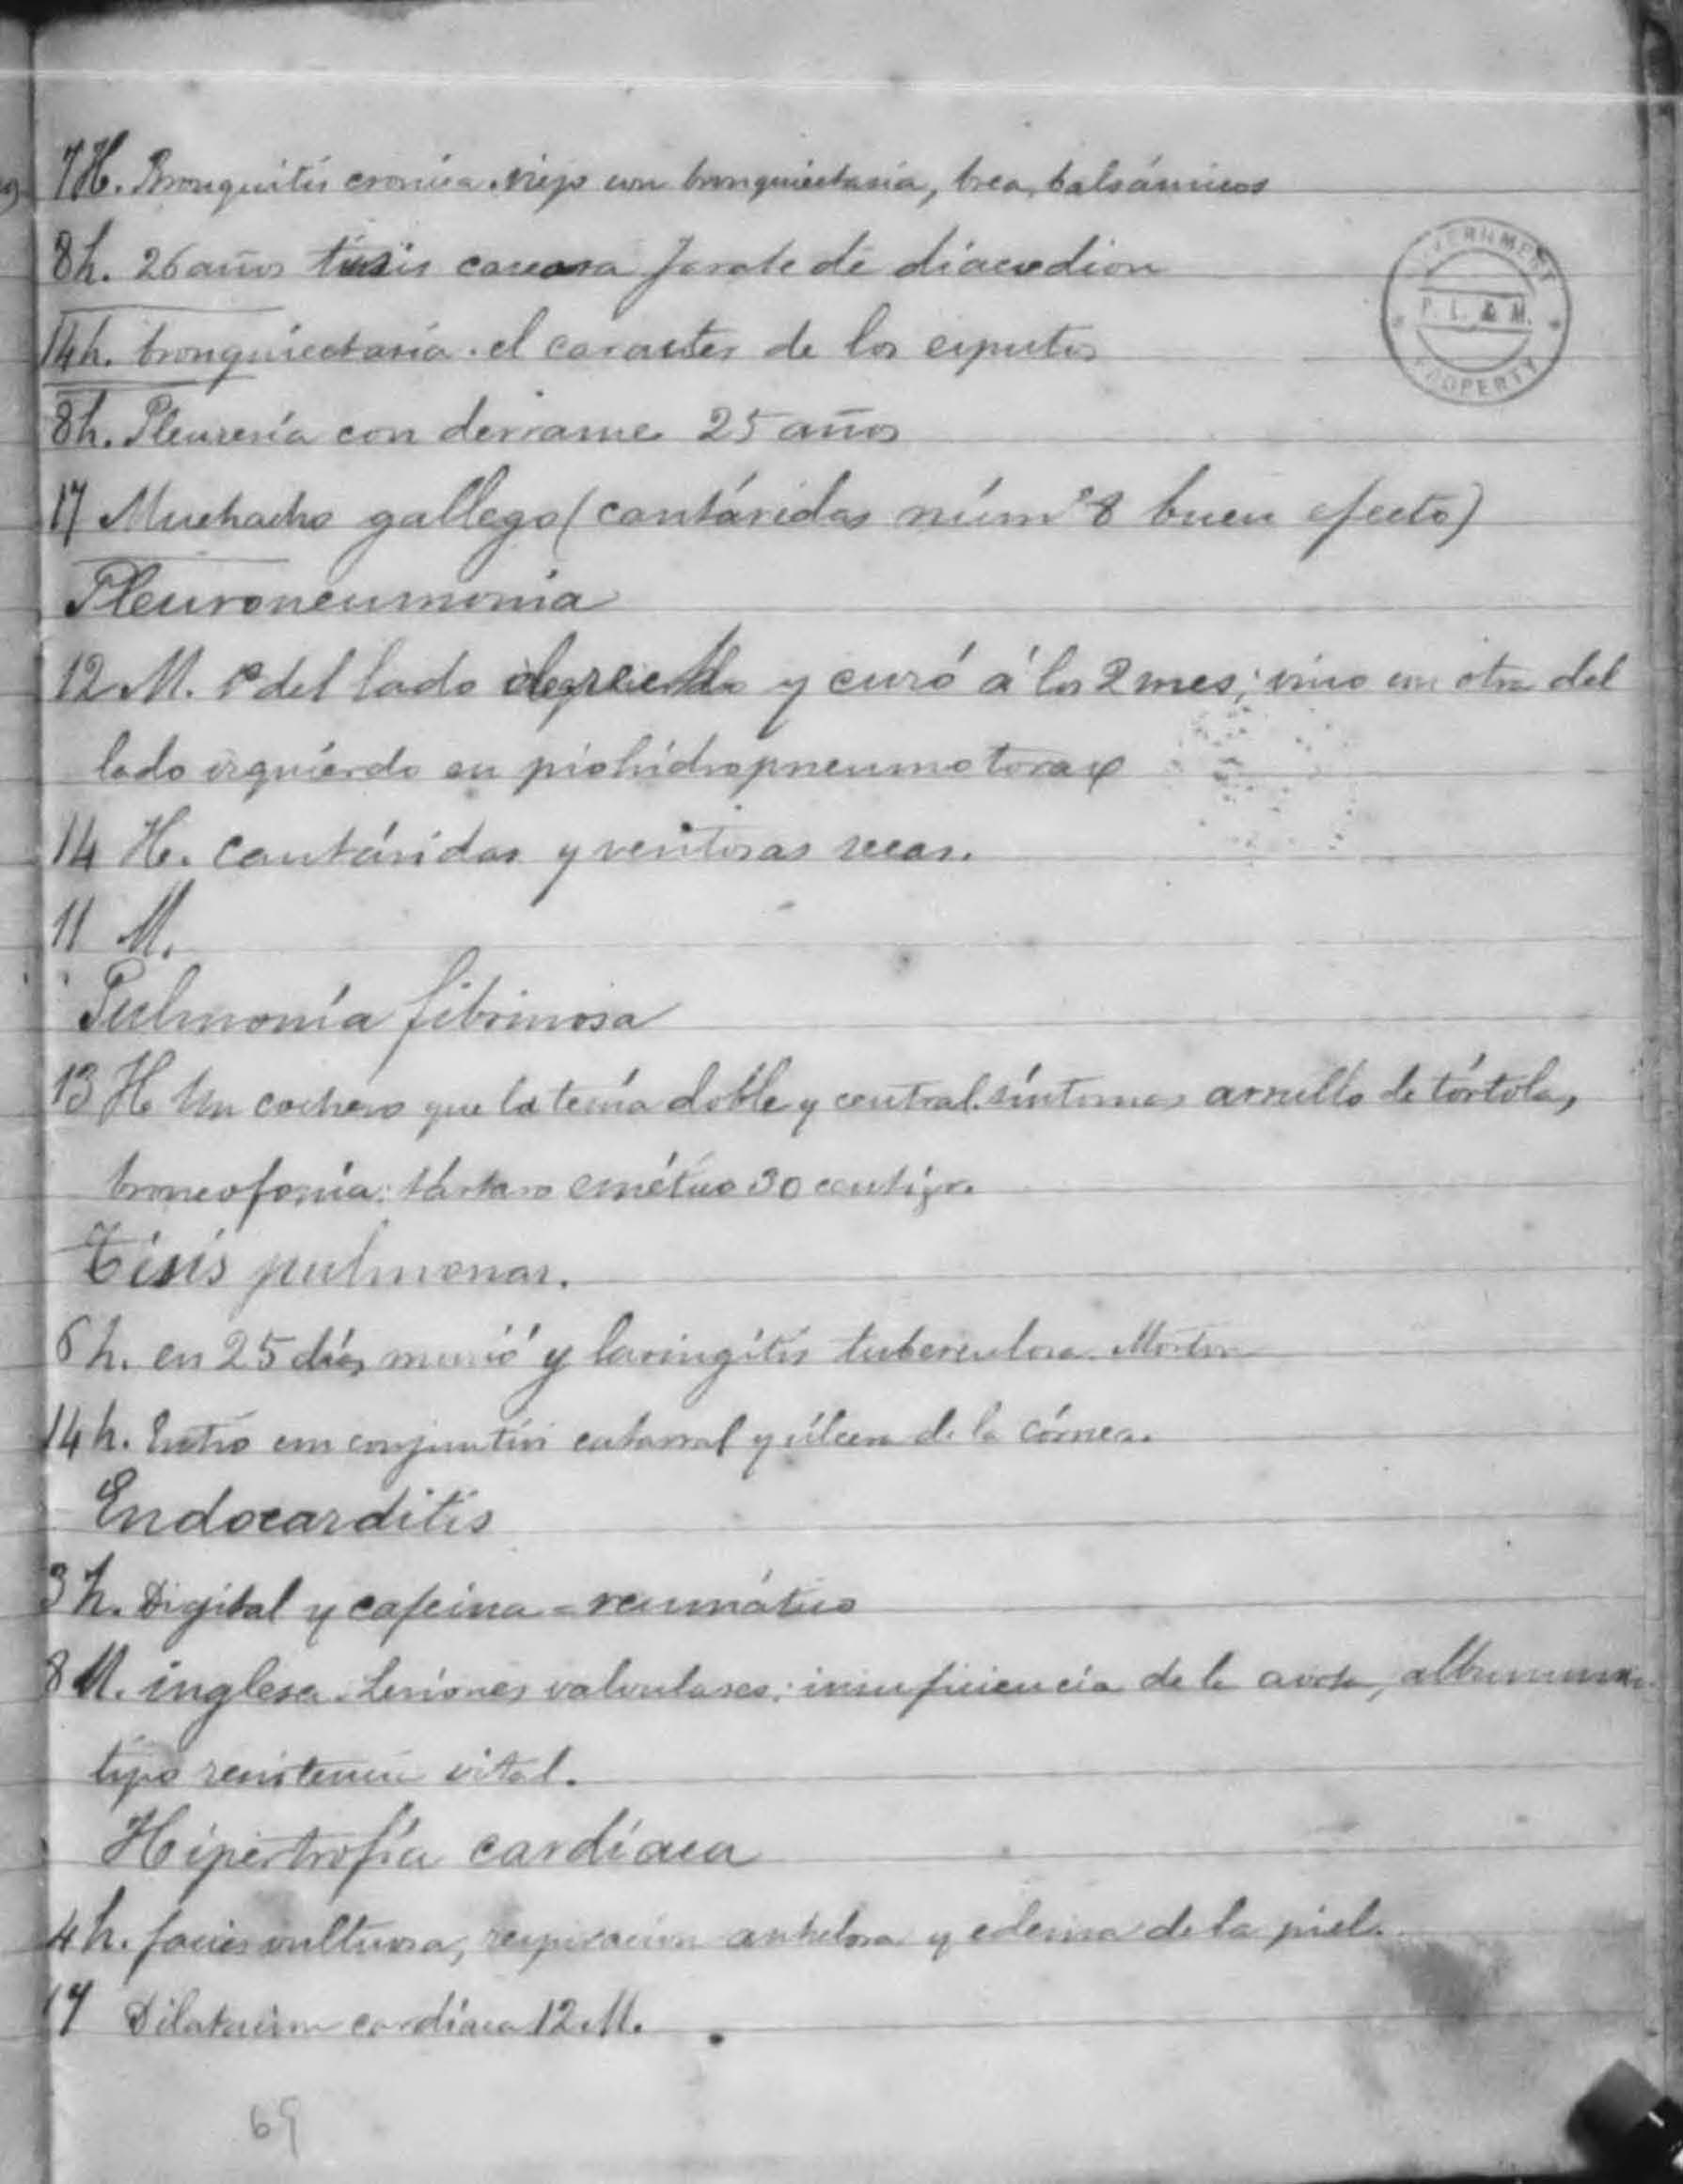 7 H. Bronquitis cronica. viejo con bronquiectasia, brea, balsámicos
8 h. 26 años tisis caseosa Jarabe de diacodion
GOVERNMENT
P. L. & M.
PROPERTY
14 h. bronquiectasia. el caracter de los esputos
8 h. Pleuresía con derrame 25 años
17 Muchacho gallego (cantáridas núm 8 buen efecto)
Pleuroneumonia
12 M. del lado derecho y curó á los 2 mes; vino con otra del
lado izquierdo en piohidropneumotorax
14 H. cantáridas y ventosas secas.
11 M.
Pulmonía fibrinosa
13 H Un cochero que la tenía doble y central. síntomas arrullo de tórtola,
broncofonía: tártaro emético 30 centígr.
Tisis pulmonar.
6 h. en 25 días murió y laringítis tuberculosa Morton
14 h. Entró con conjuntivi catarral y úlcera de la córnea.
Endocarditis
3 h. Digital y cafeina = reumático
8 M. inglesa. Lesiones valvulares: insuficiencia de la aorta,
tipo resistencia vital.
Hipertrofía cardíaca
4 h. facies vultuosa, respiración anhelosa y edema de la piel.
17 Dilatacion cardíaca 12 M.
69